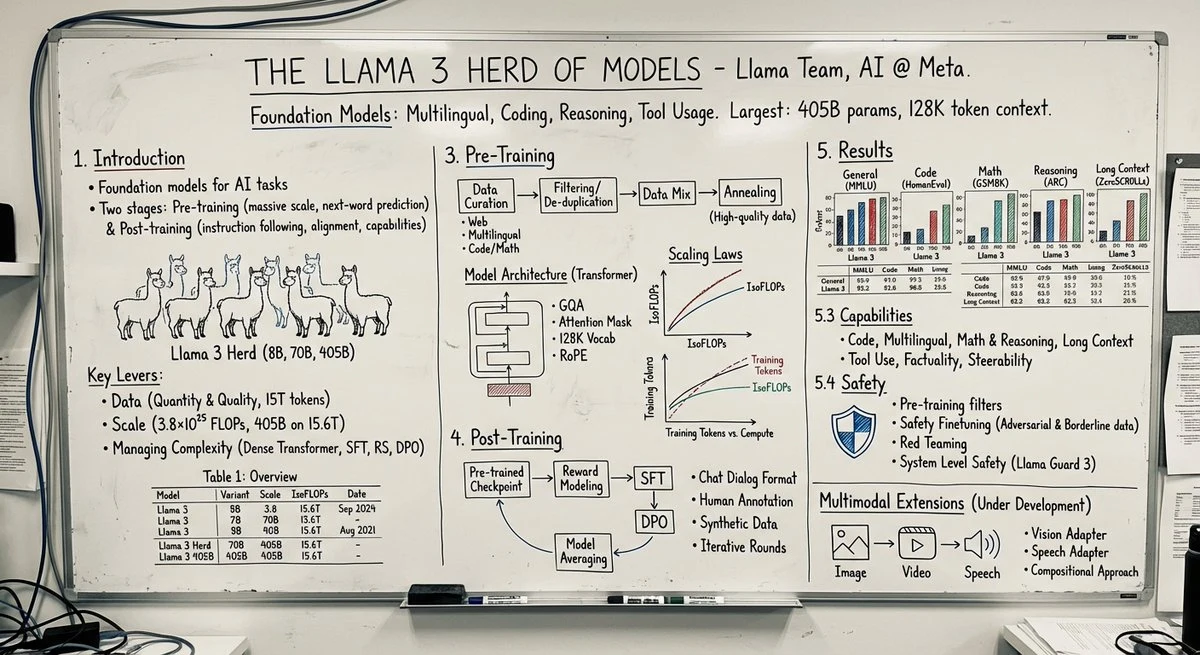 THE LLAMA 3 HERD OF MODELS – Llama Team, AI @ Meta.
Foundation Models: Multilingual, Coding, Reasoning, Tool Usage. Largest: 405B params, 128K token context.
1. Introduction
• Foundation models for AI tasks
• Two stages: Pre-training (massive scale, next-word prediction)
& Post-training (instruction following, alignment, capabilities)
Llama 3 Herd (8B, 70B, 405B)
Key Levers:
• Data (Quantity & Quality, 15T tokens)
• Scale (3.8×10²⁵ FLOPs, 405B on 15.6T)
• Managing Complexity (Dense Transformer, SFT, RS, DPO)
Table 1: Overview
Model Variant Scale IseFLOPs Date
Llama 3 9B 3.8 15.6T Sep 2024
Llama 3 7B 70B 13.6T –
Llama 3 9B 40B 15.6T Aug 2021
Llama 3 Herd 70B 405B 15.6T –
Llama 3 405B 405B 405B 15.6T –
3. Pre-Training
Data Curation
Filtering/ De-duplication
Data Mix
Annealing
(High-quality data)
• Web
• Multilingual
• Code/Math
Model Architecture (Transformer)
• GQA
• Attention Mask
• 128K Vocab
• RoPE
Scaling Laws
IsoFLOPs
IsoFLOPs
IsoFLOPs
Training Tokens
Training Tokens
IseFLOPs
Training Tokens vs. Cempute
4. Post-Training
Pre-trained Checkpoint
Reward Modeling
SFT
DPO
Model Averaging
• Chat Dialog Format
• Human Annotation
• Synthetic Data
• Iterative Rounds
5. Results
General (MMLU)
Code (HomanEval)
Math (GSM8K)
Reasoning (ARC)
Long Context (ZcroSCROLLs)
Llama 3
Llame 3
Llama 3
Llama 3
MMLU Code Math
General
Llama 3
MMLU Code Math
Code
Code
Reasoning
Long Context
5.3 Capabilities
• Code, Multilingual, Math & Reasoning, Long Context
• Tool Use, Factuality, Steerability
5.4 Safety
• Pre-training filters
• Safety Finetuning (Adversarial & Borderline data)
• Red Teaming
• System Level Safety (Llama Guard 3)
Multimodal Extensions (Under Development)
Image
Video
Speech
• Vision Adapter
• Speech Adapter
• Compositional Approach